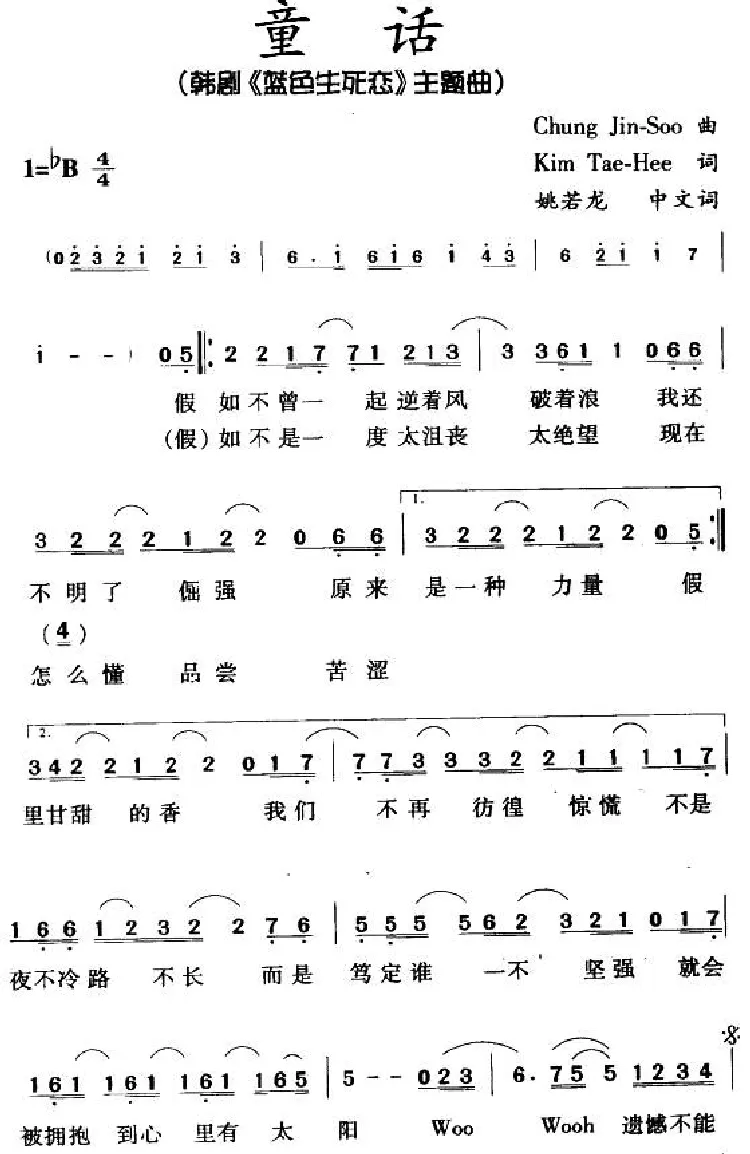 童 话
(韩剧《蓝色生死恋》主题曲)
Chung Jin-Soo 曲
1=♭B 4/4
Kim Tae-Hee 词
姚若龙 中文词
(0 2 3 2 1 2 1 3 | 6 . 1 6 1 6 1 4 3 | 6 2 1 1 7 |
1 - - ) 0 5 |: 2 2 1 7 7 1 2 1 3 | 3 3 6 1 1 0 6 6 |
假 如不曾一 起逆着风 破着浪 我还
(假)如不是一 度太沮丧 太绝望 现在
1.
3 2 2 2 1 2 2 0 6 6 | 3 2 2 2 1 2 2 0 5 :|
不明了 倔强 原来 是一种 力量 假
(4)
怎么懂 品尝 苦涩
2.
3 4 2 2 1 2 2 0 1 7 | 7 7 3 3 3 2 2 1 1 1 1 1 7 |
里甘甜 的香 我们 不再 彷徨 惊慌 不是
1 6 6 1 2 3 2 2 7 6 | 5 5 5 5 6 2 3 2 1 0 1 7 |
夜不冷路 不长 而是 笃定谁 一不 坚强 就会
1 6 1 1 6 1 1 6 1 1 6 5 | 5 - - 0 2 3 | 6 . 7 5 5 1 2 3 4 |
被拥抱 到心 里有 太 阳 Woo Wooh 遗憾不能